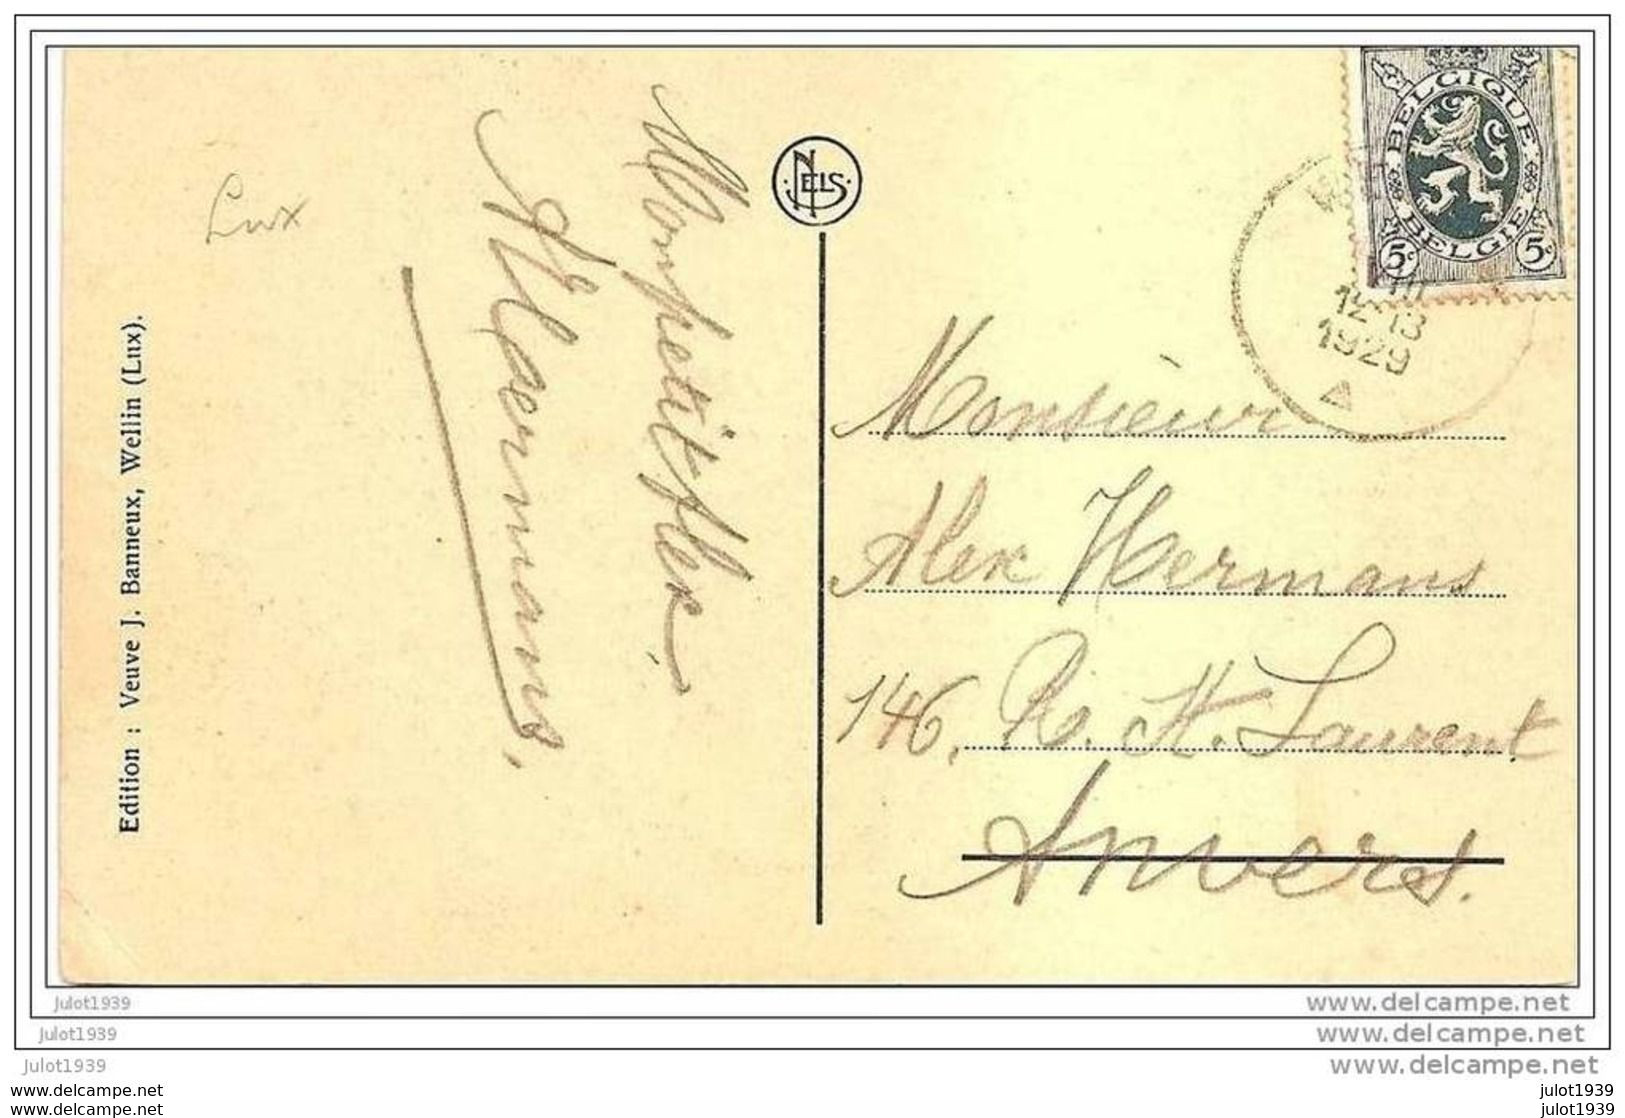 Lux
Edition : Veuve J. Banneux, Wellin (Lux).
Mon petit Alex
A. Hermans,
NELS
BELGIQUE
BELGIE
5c 5c
12-13
1929
Monsieur
Alex Hermans
146, R. St. Laurent
Anvers.
julot1939
julot1939
julot1939
www.delcampe.net
www.delcampe.net
www.delcampe.net
www.delcampe.net
www.delcampe.net
julot1939
julot1939